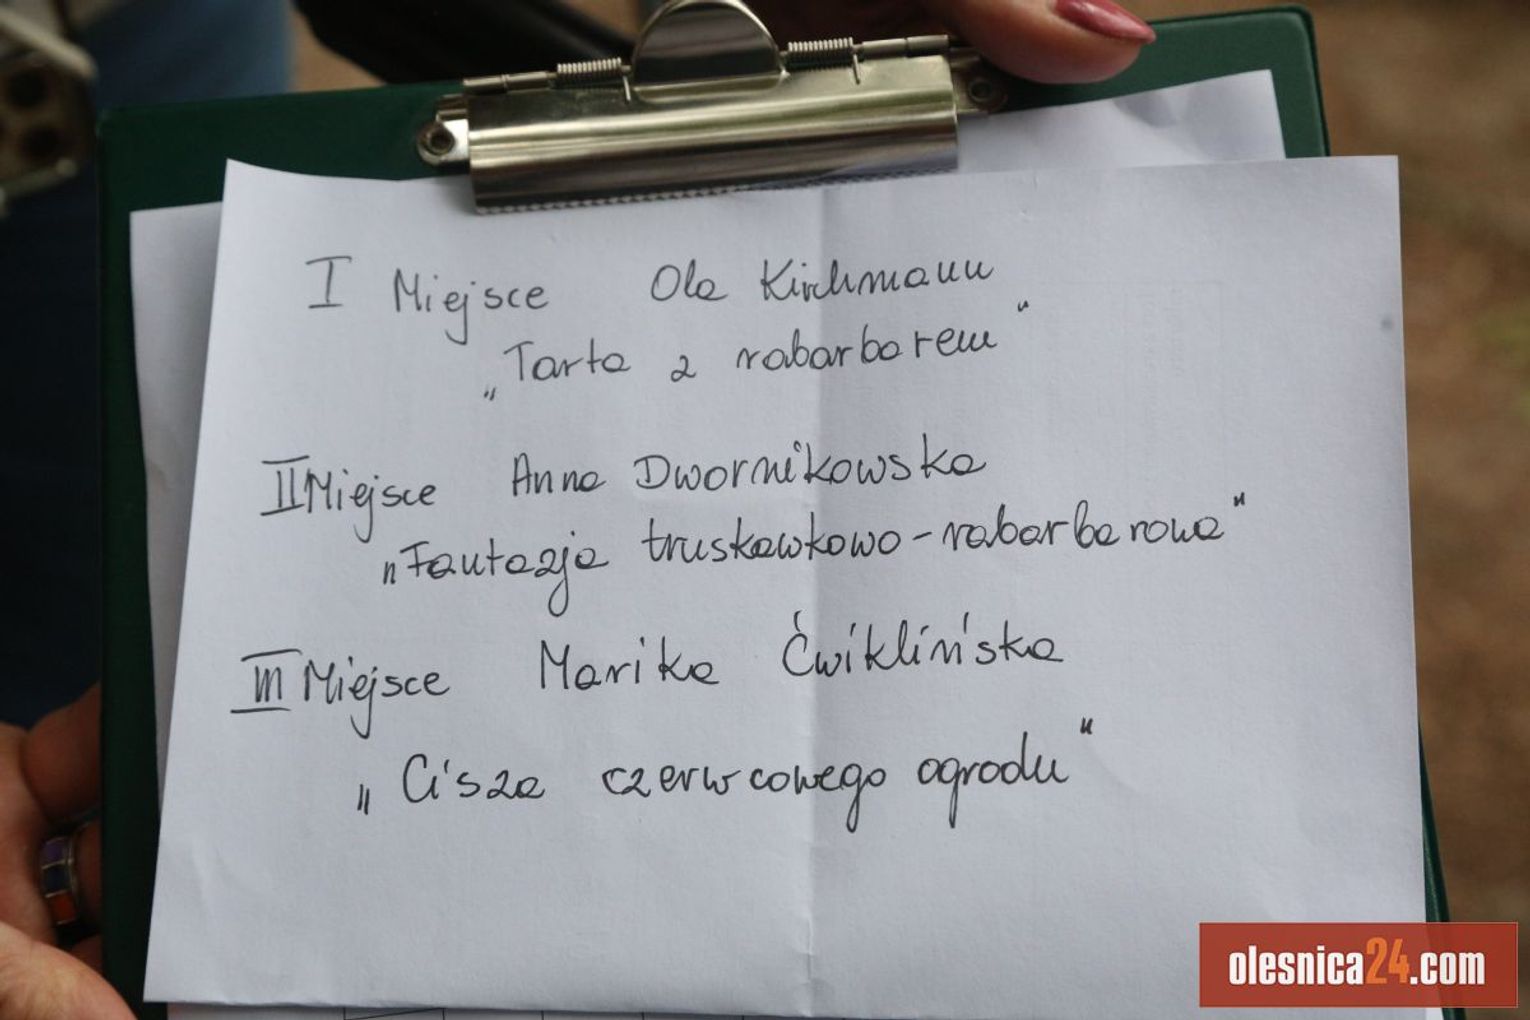 I Miejsce Ola Kirchmann
„Tarta z rabarbarem"
II Miejsce Anna Dwornikowska
„Fantazja truskawkowo-rabarbarowa"
III Miejsce Marika Ćwiklińska
„Cisza czerwcowego ogrodu"
olesnica24.com